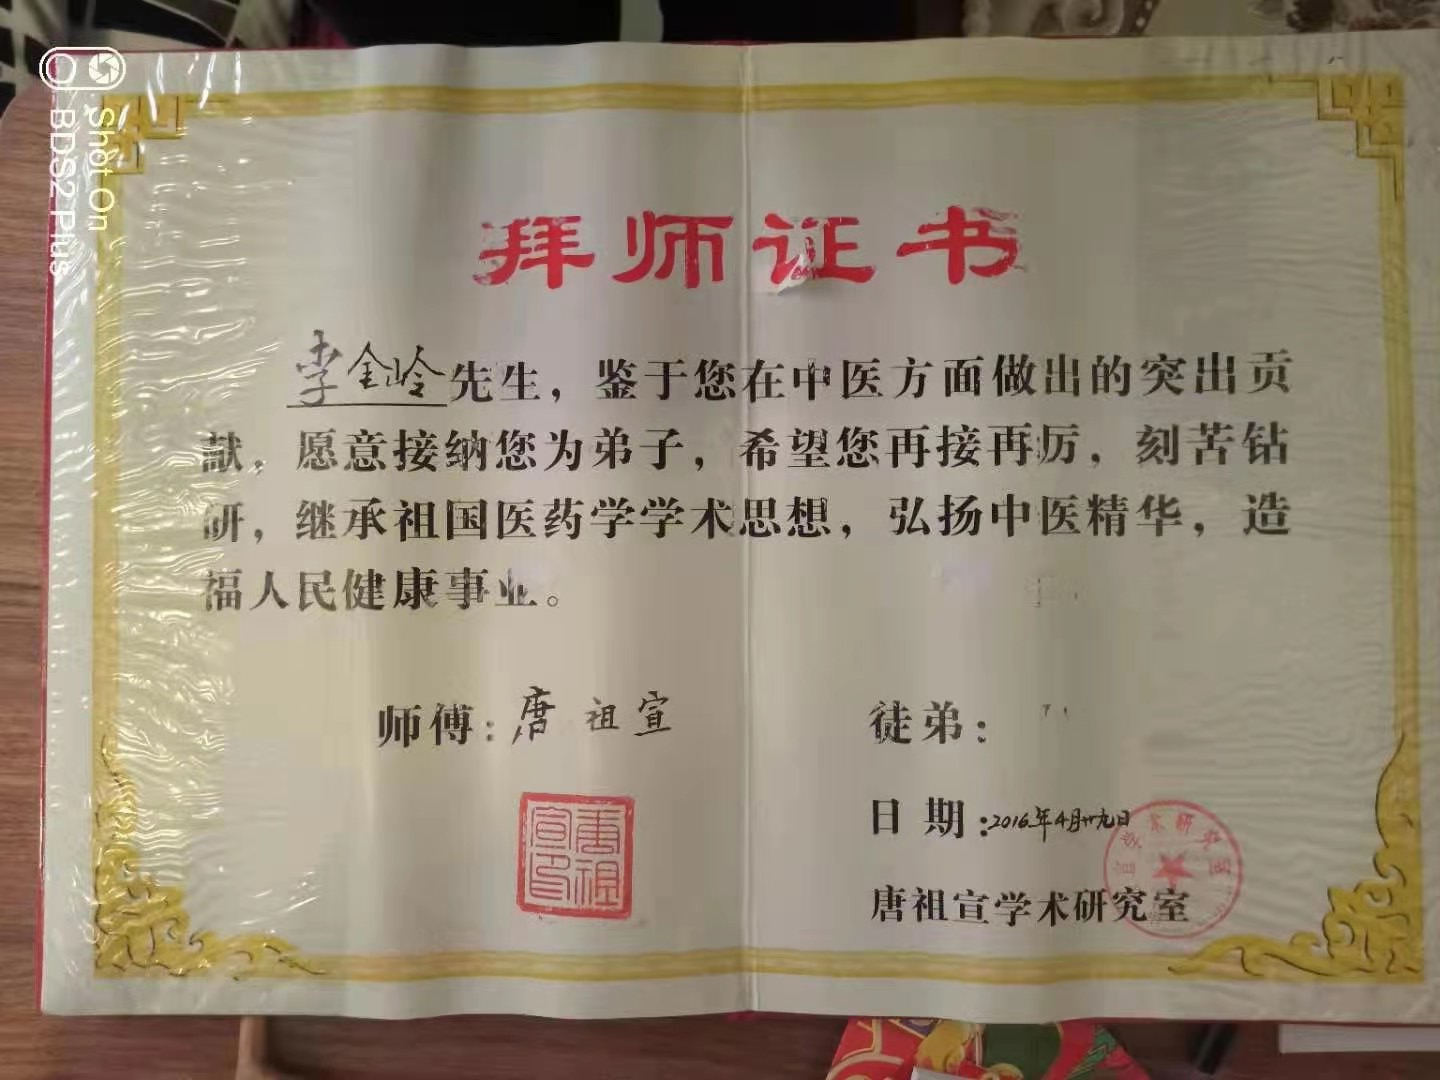 Shot On
BDS2 Plus
拜师证书
李金岭先生，鉴于您在中医方面做出的突出贡
献，愿意接纳您为弟子，希望您再接再厉，刻苦钻
研，继承祖国医药学学术思想，弘扬中医精华，造
福人民健康事业。
师傅：唐祖宣
徒弟：
唐祖宣印
日期：2016年4月廿九日
唐祖宣学术研究室
宣学术研究室